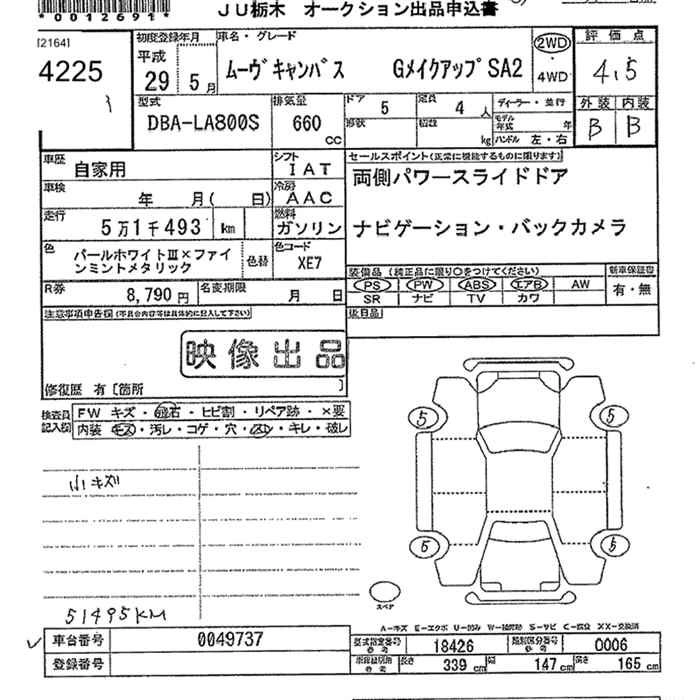 *0012691*
JU栃木 オークション出品申込書
[2164]
4225
初度登録年月
平成
29 5月
車名・グレード
ムーヴキャンバス GメイクアップSA2
2WD
4WD
評価点
4.5
型式
DBA-LA800S
排気量
660 CC
ドア 5
定員 4 人
形状
積載 kg
ディーラー・並行
モデル年式 年
ハンドル 左・右
外装 内装
B B
車歴 自家用
シフト IAT
車検 年 月( 日)
冷房 AAC
走行 5万1千493 km
燃料 ガソリン
色 パールホワイトⅢ×ファインミントメタリック
色替
色コード XE7
R券 8,790円
名変期限 月 日
セールスポイント(正常に機能するものに限ります)
両側パワースライドドア
ナビゲーション・バックカメラ
装備品(純正品に限り○をつけてください)
PS PW ABS エアB AW
SR ナビ TV カワ
新車保証書
有・無
後日品
注意事項申告欄(不具合内容等は具体的に記入して下さい)
映像出品
修復歴 有〔箇所 〕
検査員記入欄
FW キズ・飛石・ヒビ割・リペア跡・×要
内装 キズ・汚レ・コゲ・穴・スレ・キレ・破レ
小キズ
51495KM
5
5
5
5
スペア
A-キズ E-エクボ U-凹み W-補修跡 S-サビ C-腐食 XX-交換済
車台番号 0049737
登録番号
型式指定番号 参考 18426
類別区分番号 参考 0006
長さ 339 cm
幅 147 cm
高さ 165 cm